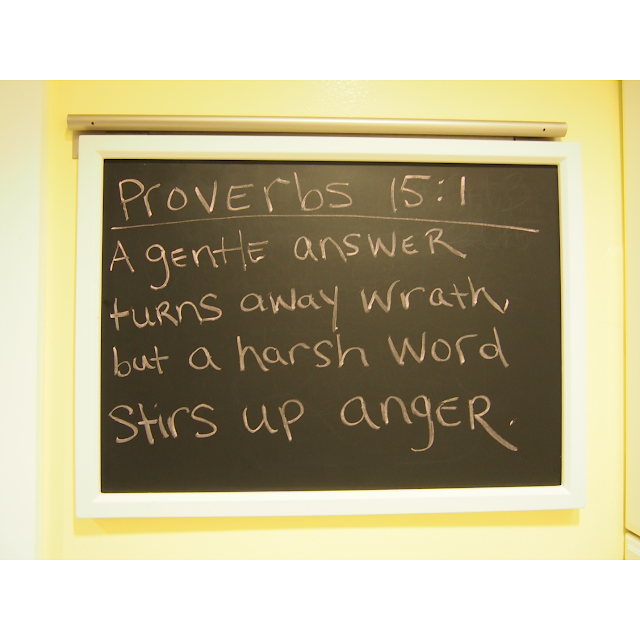 Proverbs 15:1
A gentle answer
turns away wrath,
but a harsh word
stirs up anger.